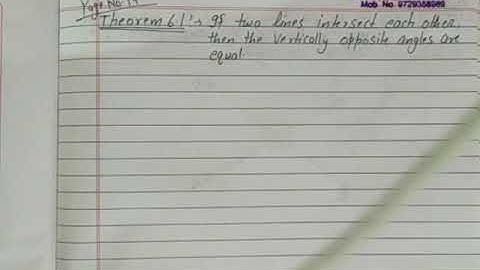 Page No 14
Mob No. 9729358989
Theorem 6.1 :→ If two lines intersect each other,
then the vertically opposite angles are
equal.